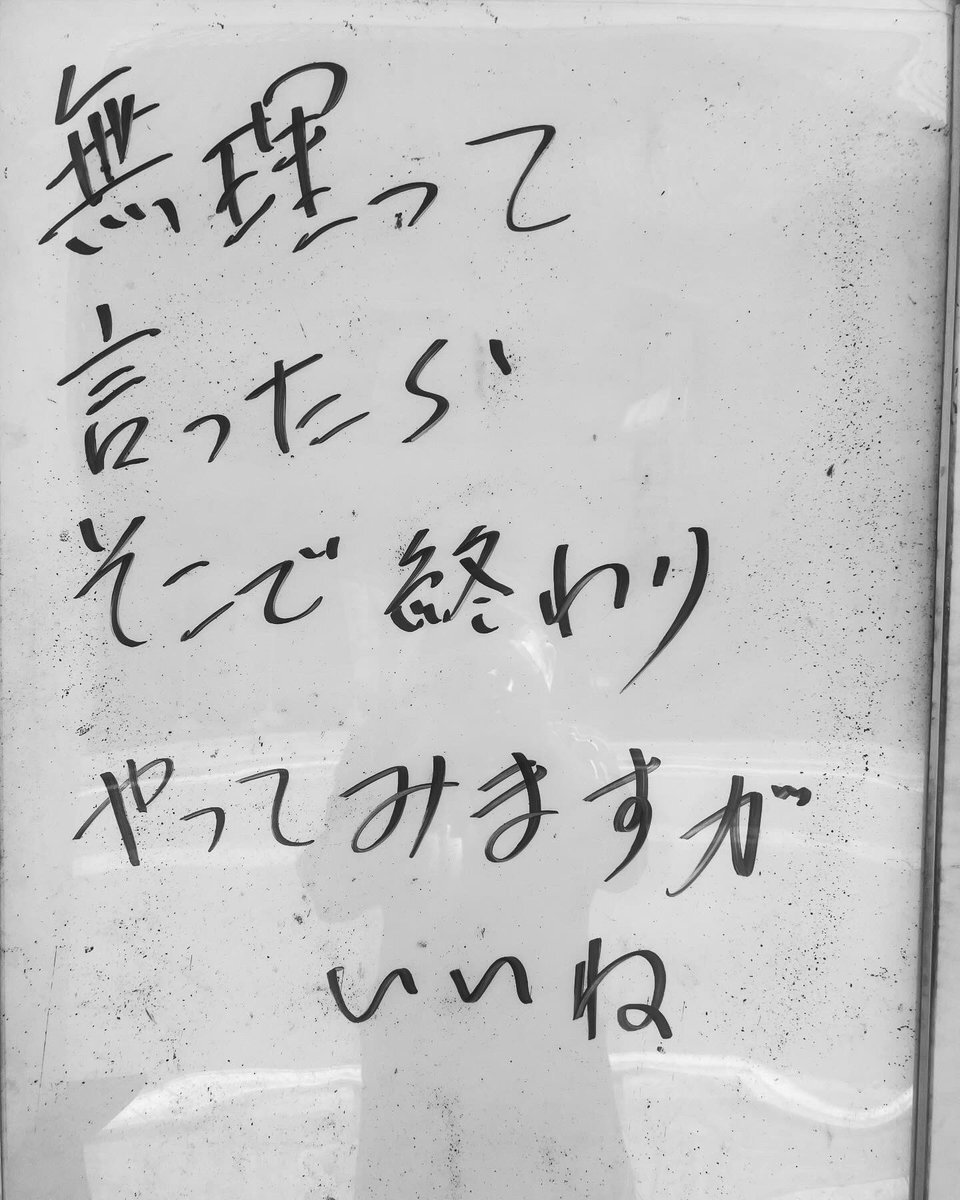 無理って
言ったら
そこで終わり
やってみますが
いいね